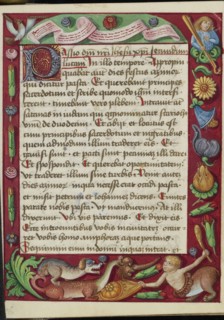 Passio dni nri ihesu xpi secundum
lucam. In illo tempore Appropin
quabat aut dies festus azimorum
qui dicitur pasca. Et querebant principes
sacerdotum et scribe quomodo ihm interfi
cerent timebant vero plebem. Intravit
sathanas in iudam qui cognominatur
de duodecim. Et abiit et locutus est
cum principibus sacerdotum et magistratibus
quemadmodum illum traderet eis. Et
gavisi sunt et pacti sunt pecuniam illi dare.
Et spopondit. Et querebat oportunitatem
ut traderet illum sine turbis. Venit autem
dies azimorum in qua necesse erat occidi pasca.
et misit petrum et iohannem dicens. Euntes
parate nobis pasca ut manducemus. At illi
dixerunt ubi vis paremus. Et dixit eis
Ecce introeuntibus vobis in civitatem occur
ret vobis homo amphoram aque portans.
Sequimini eum in domum in qua intrat et